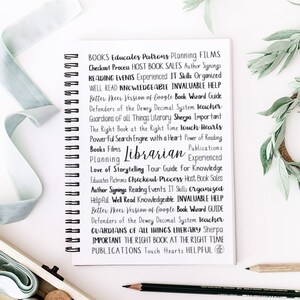 BOOKS Educates Patrons Planning FILMS
Checkout Process HOST BOOK SALES Author Signings
READING EVENTS Experienced IT Skills Organized
WELL READ KNOWLEDGEABLE INVALUABLE HELP
Better Than Version of Google Book Wizard Guide
Defenders of the Dewey Decimal System teacher
Guardians of all Things Literary Sherpa Important
The Right Book at the Right Time Touch Hearts
Powerful Search Engine with a Heart Power of Reading
Books Films Librarian Publications
Planning Experienced
Love of Storytelling Tour Guide for Knowledge
Educates Patrons Checkout Process Host Book Sales
Author Signings Reading Events IT Skills Organized
Helpful Well Read Knowledgeable INVALUABLE HELP
Better Than Version of Google Book Wizard GUIDE
Defenders of the Dewey Decimal System Teacher
GUARDIANS OF ALL THINGS LITERARY Sherpa
IMPORTANT THE RIGHT BOOK AT THE RIGHT TIME
PUBLICATIONS Touch Hearts HELPFUL